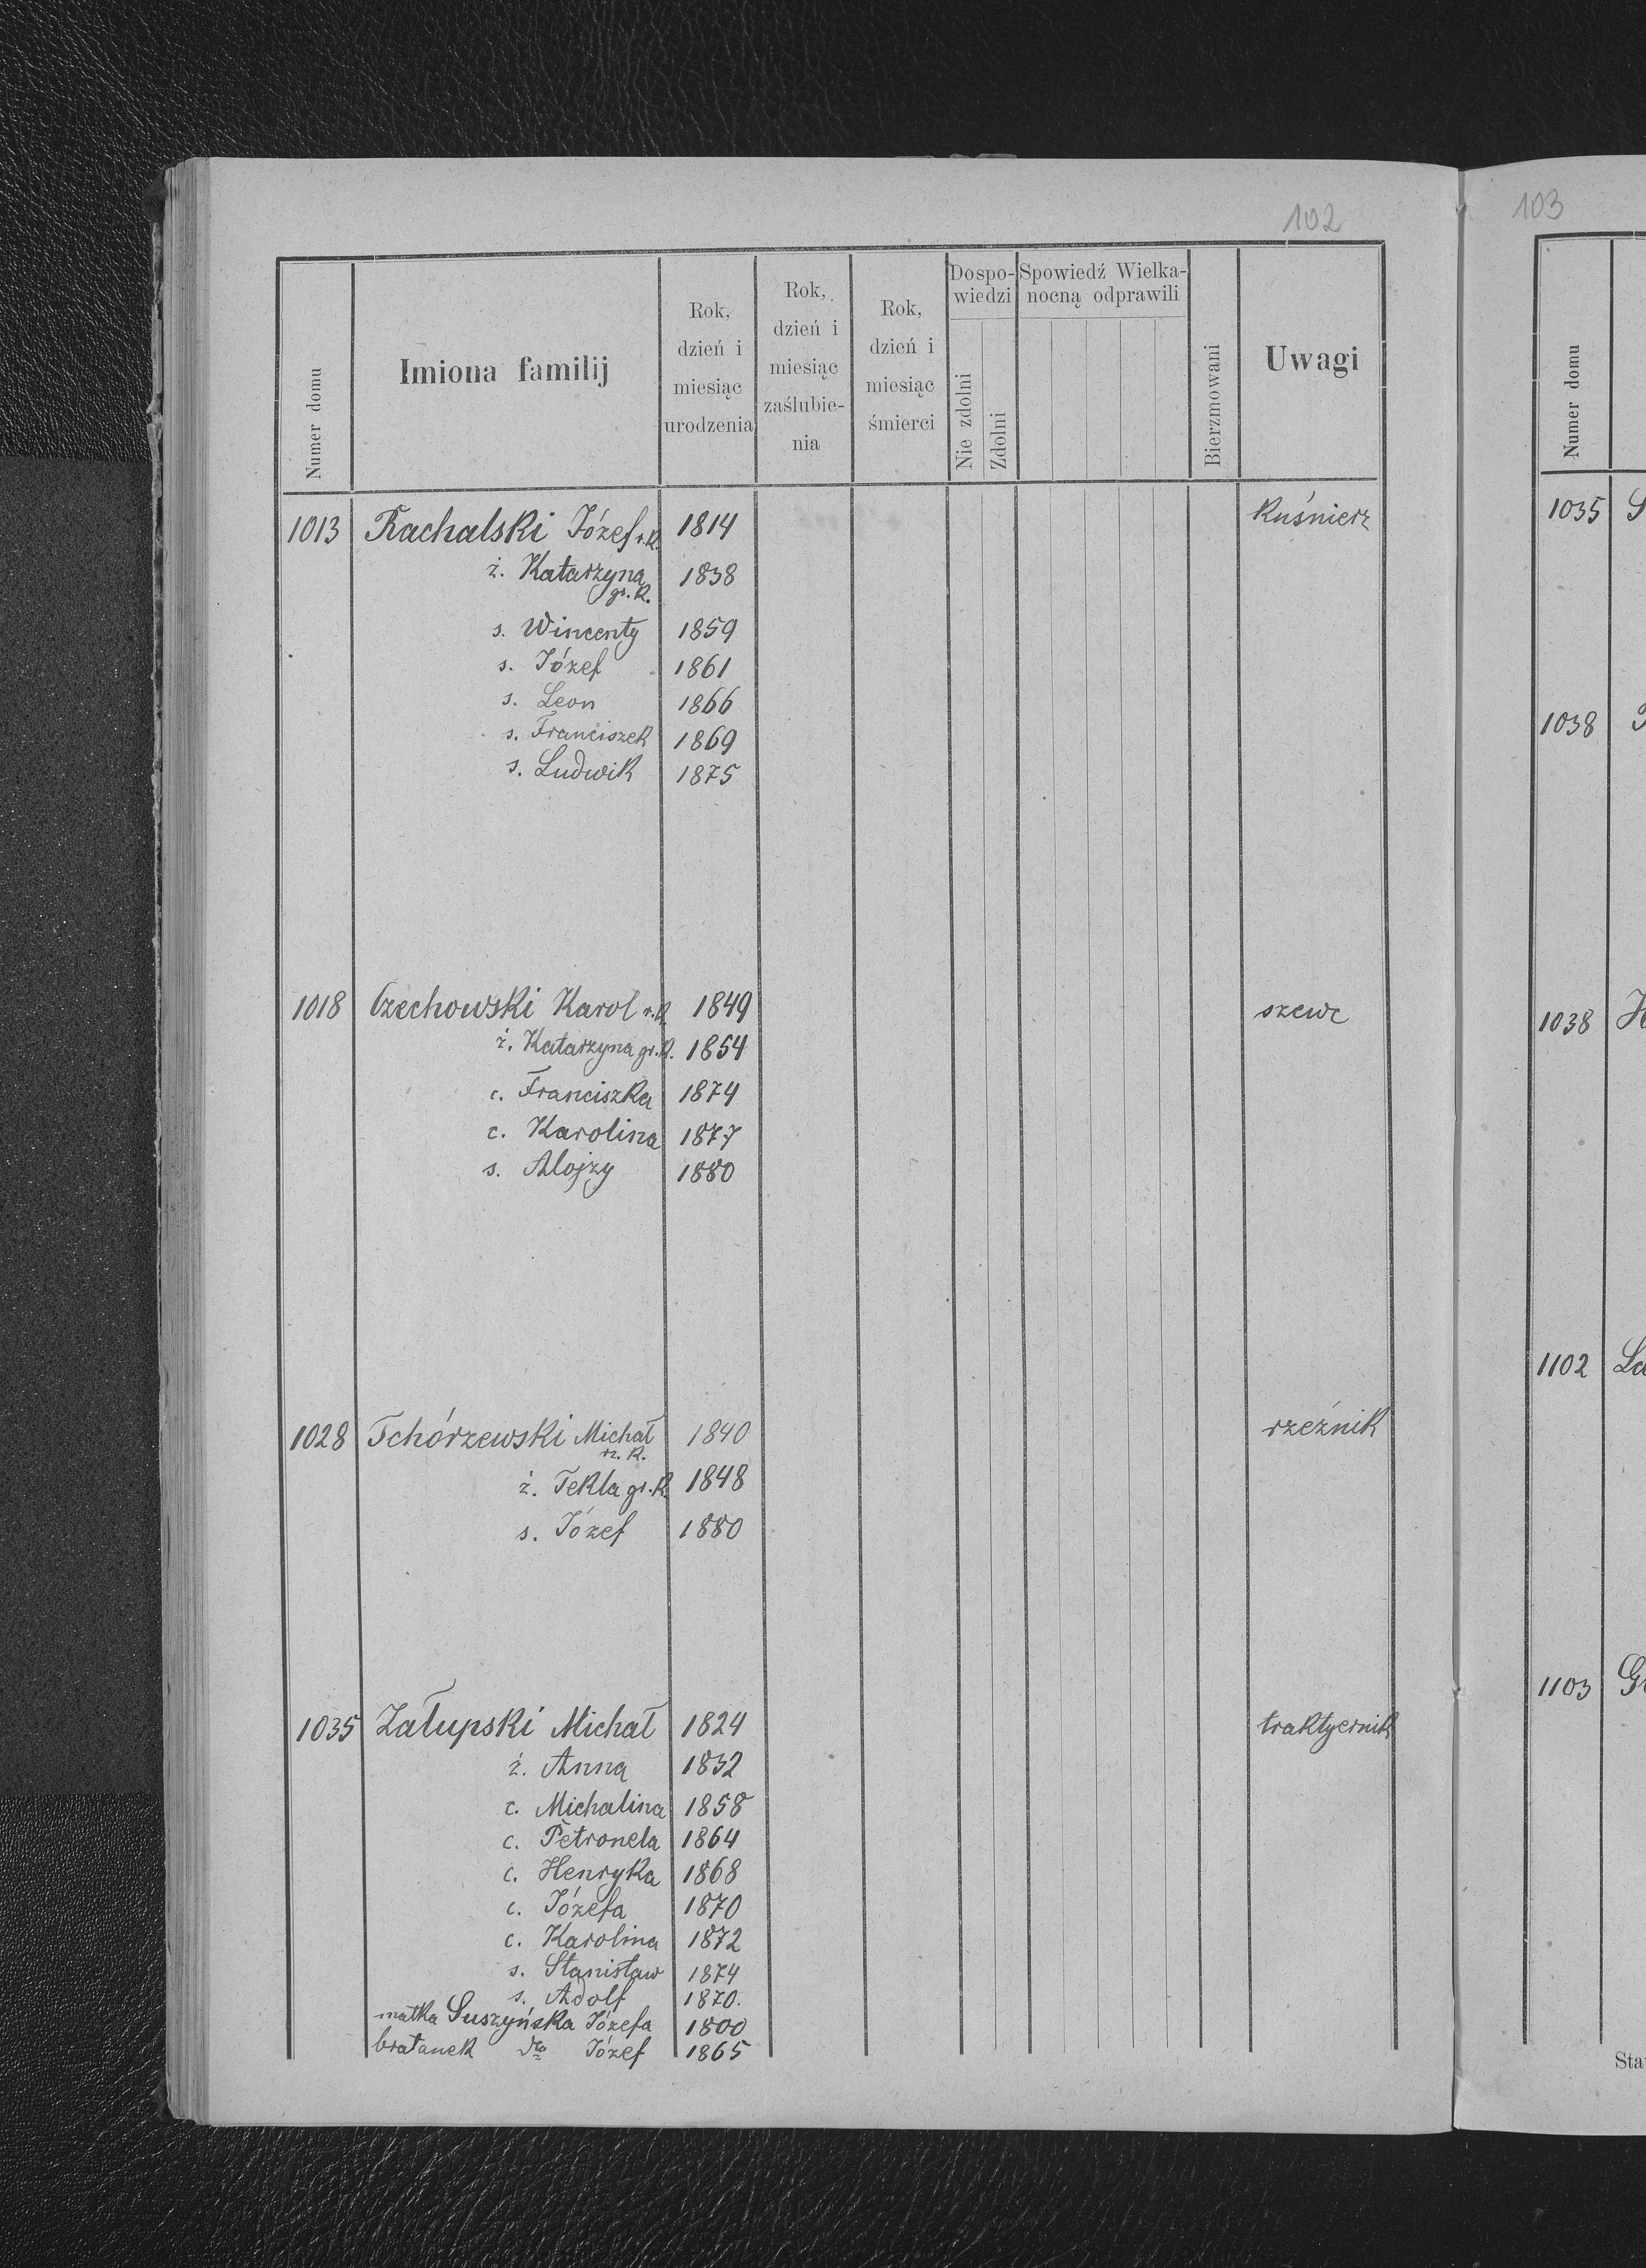 102
Numer domu
Imiona familij
Rok,
dzień i
miesiąc
urodzenia
Rok,
dzień i
miesiąc
zaślubie-
nia
Rok,
dzień i
miesiąc
śmierci
Dospo-
wiedzi
Nie zdolni
Zdolni
Spowiedź Wielka-
nocną odprawili
Bierzmowani
Uwagi
1013 Rachalski Józef r.k. 1814 Kuśnierz
ż. Katarzyna 1838
gr.k.
s. Wincenty 1859
s. Józef 1861
s. Leon 1866
s. Franciszek 1869
s. Ludwik 1875
1018 Czechowski Karol r.k. 1849 szewc
ż. Katarzyna gr.k. 1854
c. Franciszka 1874
c. Karolina 1877
s. Alojzy 1880
1028 Tchórzewski Michał 1840 rzeźnik
rz. k.
ż. Tekla gr.k. 1848
s. Józef 1880
1035 Załupski Michał 1824 traktyernik
ż. Anna 1832
c. Michalina 1858
c. Petronela 1864
c. Henryka 1868
c. Józefa 1870
c. Karolina 1872
s. Stanisław 1874
s. Adolf 1870.
matka Suszyńska Józefa 1800
bratanek dto Józef 1865
103
Numer domu
1035
1038
1038
1102
1103